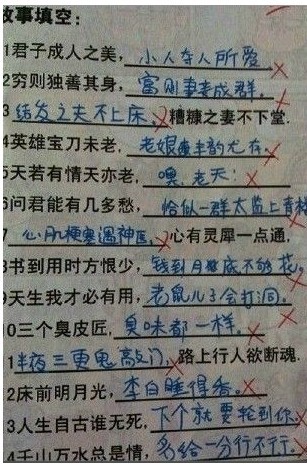 故事填空:
1君子成人之美,小人夺人所爱
2穷则独善其身,富则妻妾成群.
3结发之夫不上床,糟糠之妻不下堂.
4英雄宝刀未老,老娘丰韵尤存.
5天若有情天亦老,噢.老天!
6问君能有几多愁,恰似一群太监上青楼
7心肌梗塞遇神医,心有灵犀一点通.
8书到用时方恨少,钱到月底不够花.
9天生我才必有用,老鼠儿子会打洞.
0三个臭皮匠,臭味都一样.
1半夜三更鬼敲门,路上行人欲断魂.
2床前明月光,李白睡得香.
3人生自古谁无死,下个就要轮到你.
4千山万水总是情,多给一分行不行.